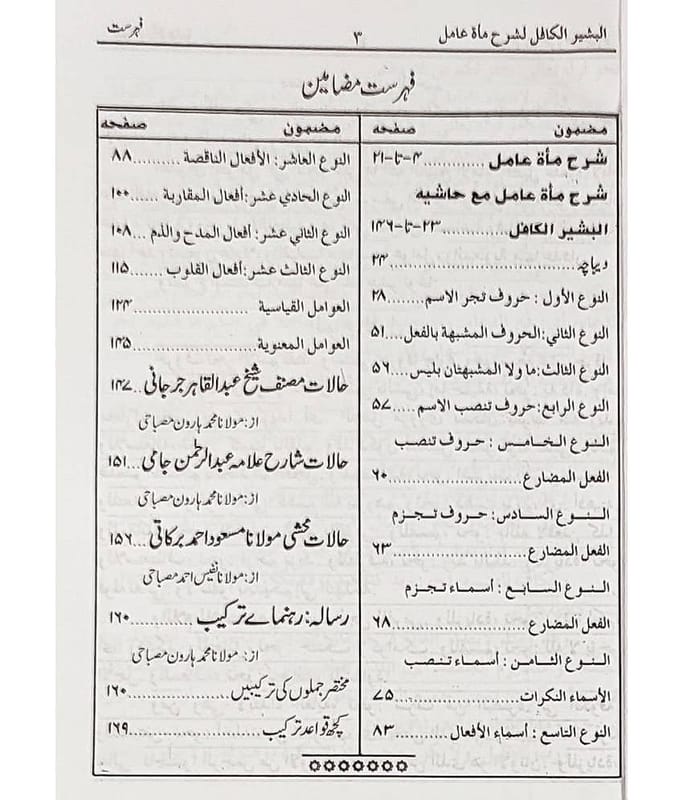 البشير الكافل لشرح مأة عامل ۳ فہرست
فہرست مضامین
مضمون صفحہ
شرح مأة عامل ............ ۴-تا-۲۱
شرح مأة عامل مع حاشیه
البشیر الکافل ............ ۲۳-تا-۱۴۶
دیباچہ ............ ۲۴
النوع الأول : حروف تجر الاسم ........ ۲۸
النوع الثاني: الحروف المشبهة بالفعل .... ۵۱
النوع الثالث: ما ولا المشبهتان بليس ... ۵۶
النوع الرابع: حروف تنصب الاسم .... ۵۷
النوع الخامس : حروف تنصب
الفعل المضارع ............ ۶۰
النوع السادس: حروف تجزم
الفعل المضارع ............ ۶۳
النوع السابع : أسماء تجزم
الفعل المضارع ............ ۶۸
النوع الثامن : أسماء تنصب
الأسماء النكرات ............ ۷۵
النوع التاسع : أسماء الأفعال ........ ۸۳
مضمون صفحہ
النوع العاشر: الأفعال الناقصة .......... ۸۸
النوع الحادي عشر: أفعال المقاربة ...... ۱۰۰
النوع الثاني عشر: أفعال المدح والذم .. ۱۰۸
النوع الثالث عشر: أفعال القلوب ...... ۱۱۵
العوامل القياسية ............ ۱۲۴
العوامل المعنوية ............ ۱۴۵
حالات مصنف شیخ عبد القاہر جرجانی ... ۱۴۷
از: مولانا محمد ہارون مصباحی
حالات شارح علامہ عبد الرحمن جامی ... ۱۵۱
از: مولانا محمد ہارون مصباحی
حالات محشی مولانا مسعود احمد برکاتی ... ۱۵۶
از: مولانا نفیس احمد مصباحی
رسالہ: رہنماے ترکیب ............ ۱۶۰
از: مولانا محمد ہارون مصباحی
مختصر جملوں کی ترکیبیں ............ ۱۶۰
کچھ قواعد ترکیب ............ ۱۶۹